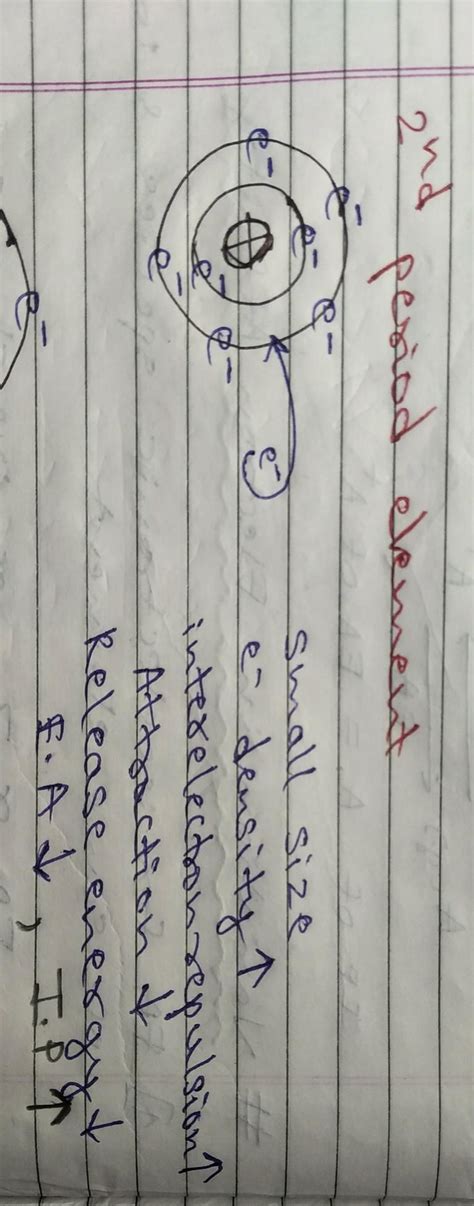 2nd period element
e-
e-
e-
e-
e-
e-
e-
e-
Small size
e- density ↑
interelectron repulsion ↑
Attraction ↓
Release energy ↓
E.A ↓, I.P ↑
e-
#